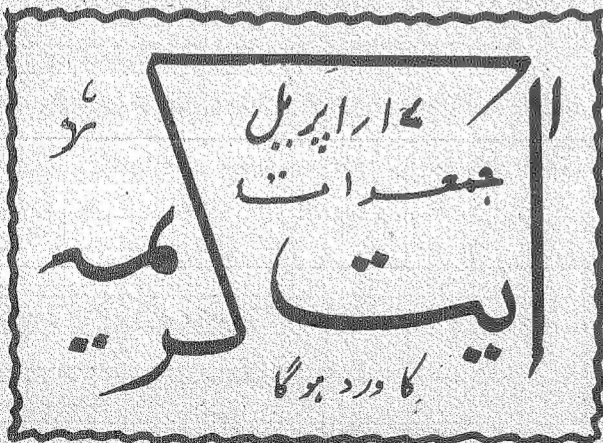 اپریل
جمعرات
ایت کریمہ
کا ورد ہوگا